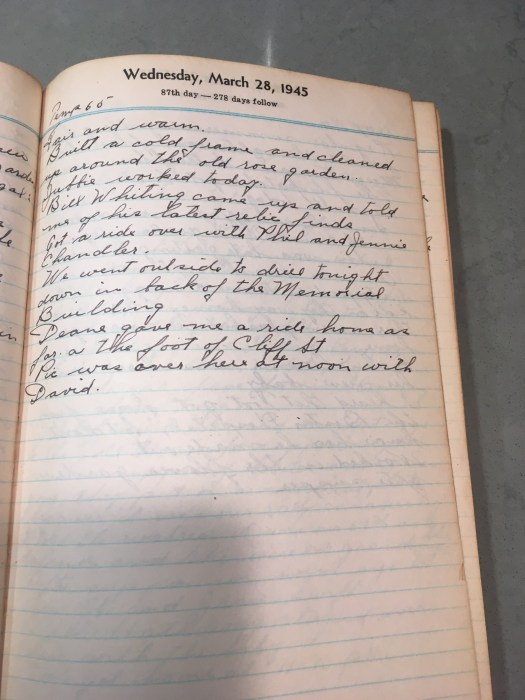 Wednesday, March 28, 1945
87th day — 278 days follow
Temp 65
Fair and warm.
Built a cold frame and cleaned
up around the old rose garden.
worked today.
Bill Whiting came up and told
me of his latest relic finds
Got a ride over with Phil and Jennie
Chandler.
We went outside to drill tonight
down in back of the Memorial
Building
Deane gave me a ride home as
far a the foot of Cliff St
Pic was over here at noon with
David.